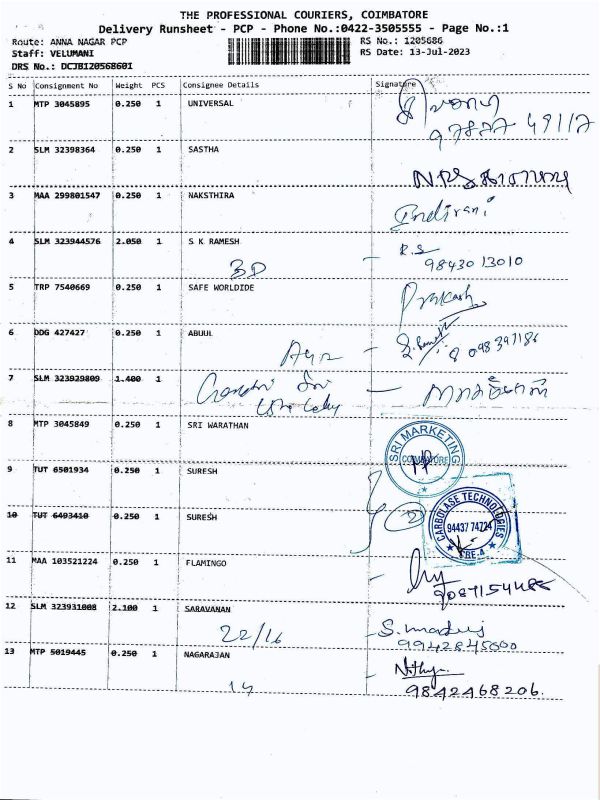 THE PROFESSIONAL COURIERS, COIMBATORE
Delivery Runsheet - PCP - Phone No.:0422-3505555 - Page No.:1
Route: ANNA NAGAR PCP
RS No.: 1205686
Staff: VELUMANI
RS Date: 13-Jul-2023
DRS No.: DCJBI20568601
S No Consignment No Weight PCS Consignee Details Signature
1 MTP 3045895 0.250 1 UNIVERSAL
2 SLM 32398364 0.250 1 SASTHA
NPS
3 MAA 299801547 0.250 1 NAKSTHIRA
Indirani
4 SLM 323944576 2.050 1 S K RAMESH R.S
3D 9843013010
5 TRP 7540669 0.250 1 SAFE WORLDIDE Prakash
6 DDG 427427 0.250 1 ABUUL
8098397186
7 SLM 323929809 1.400 1
8 MTP 3045849 0.250 1 SRI WARATHAN
SRI MARKETING
COIMBATORE
9 TUT 6501934 0.250 1 SURESH
10 TUT 6493410 0.250 1 SURESH 2
CARBOLASE TECHNOLOGIES
94437 74724
CBE-4
11 MAA 103521224 0.250 1 FLAMINGO
12 SLM 323931008 2.100 1 SARAVANAN
22/16
9942845000
13 MTP 5019445 0.250 1 NAGARAJAN Nithya
14 9842468206.